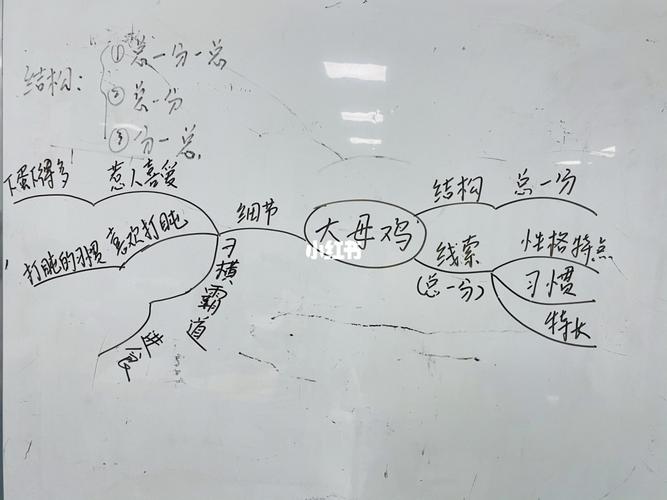 结构:
①总一分一总
②总一分
③分一总
下蛋下得多
惹人喜爱
打盹的习惯
喜欢打盹
细节
习横霸道
进食
大母鸡
小红书
结构
总一分
线索
(总一分)
性格特点
习惯
特长